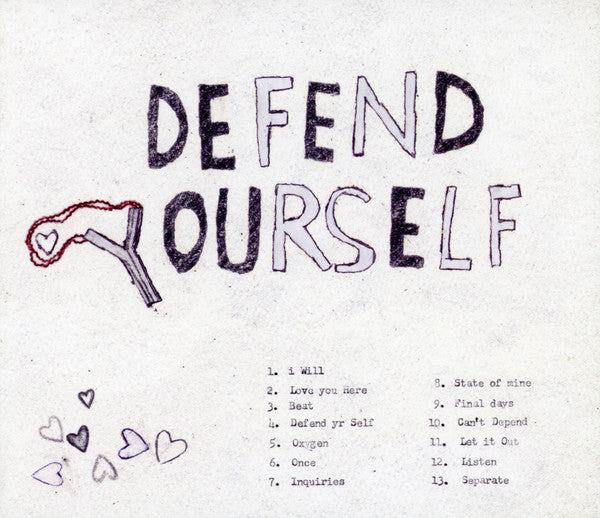 DEFEND
YOURSELF
1. i Will
2. Love you Here
3. Beat
4. Defend yr Self
5. Oxygen
6. Once
7. Inquiries
8. State of mine
9. Final days
10. Can't Depend
11. Let it Out
12. Listen
13. Separate